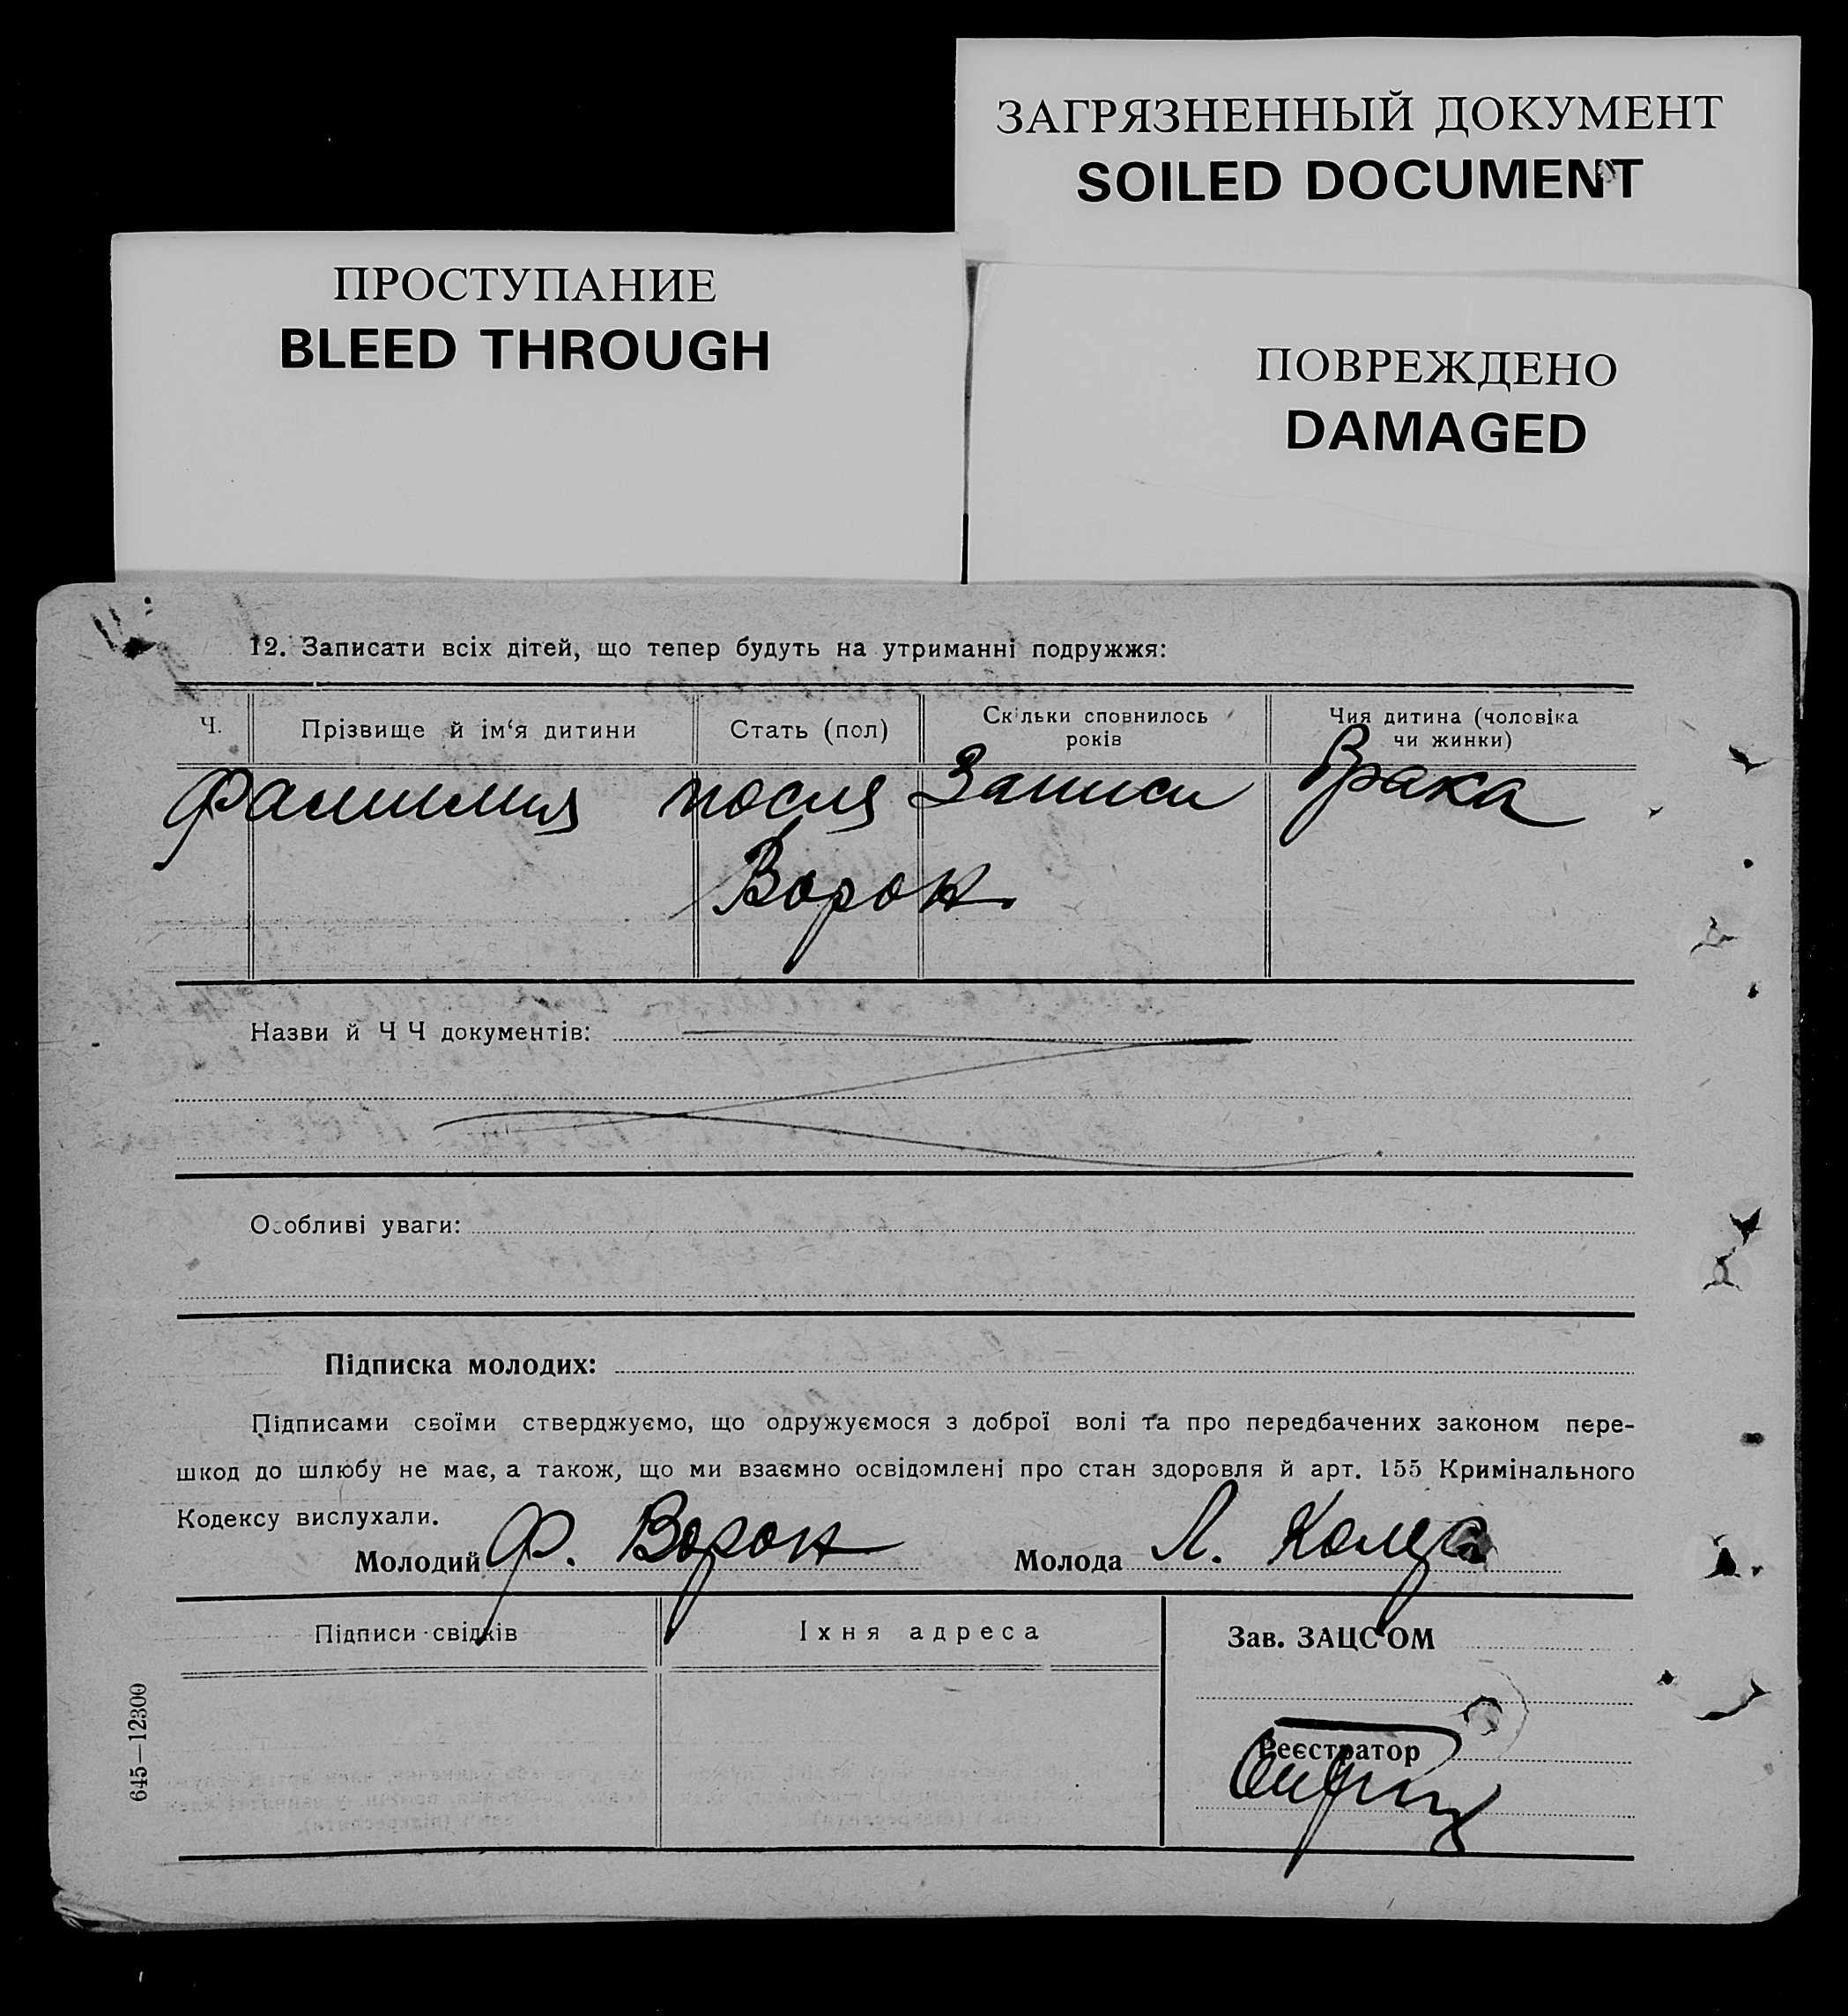 ЗАГРЯЗНЕННЫЙ ДОКУМЕНТ
SOILED DOCUMENT
ПРОСТУПАНИЕ
BLEED THROUGH
ПОВРЕЖДЕНО
DAMAGED
12. Записати всіх дітей, що тепер будуть на утриманні подружжя:
Ч. Прізвище й ім‘я дитини Стать (пол) Скільки сповнилось років Чия дитина (чоловіка чи жинки)
Фамилия посля Записи Брака
Ворон
Назви й Ч Ч документів:
Особливі уваги:
Підписка молодих:
Підписами своїми стверджуємо, що одружуємося з доброї волі та про передбачених законом пере-
шкод до шлюбу не має, а також, що ми взаємно освідомлені про стан здоровля й арт. 155 Кримінального
Кодексу вислухали.
Молодий Ф. Ворон Молода Л.
Підписи свідків Іхня адреса Зав. ЗАЦС'ОМ
Реєстратор
645—12300